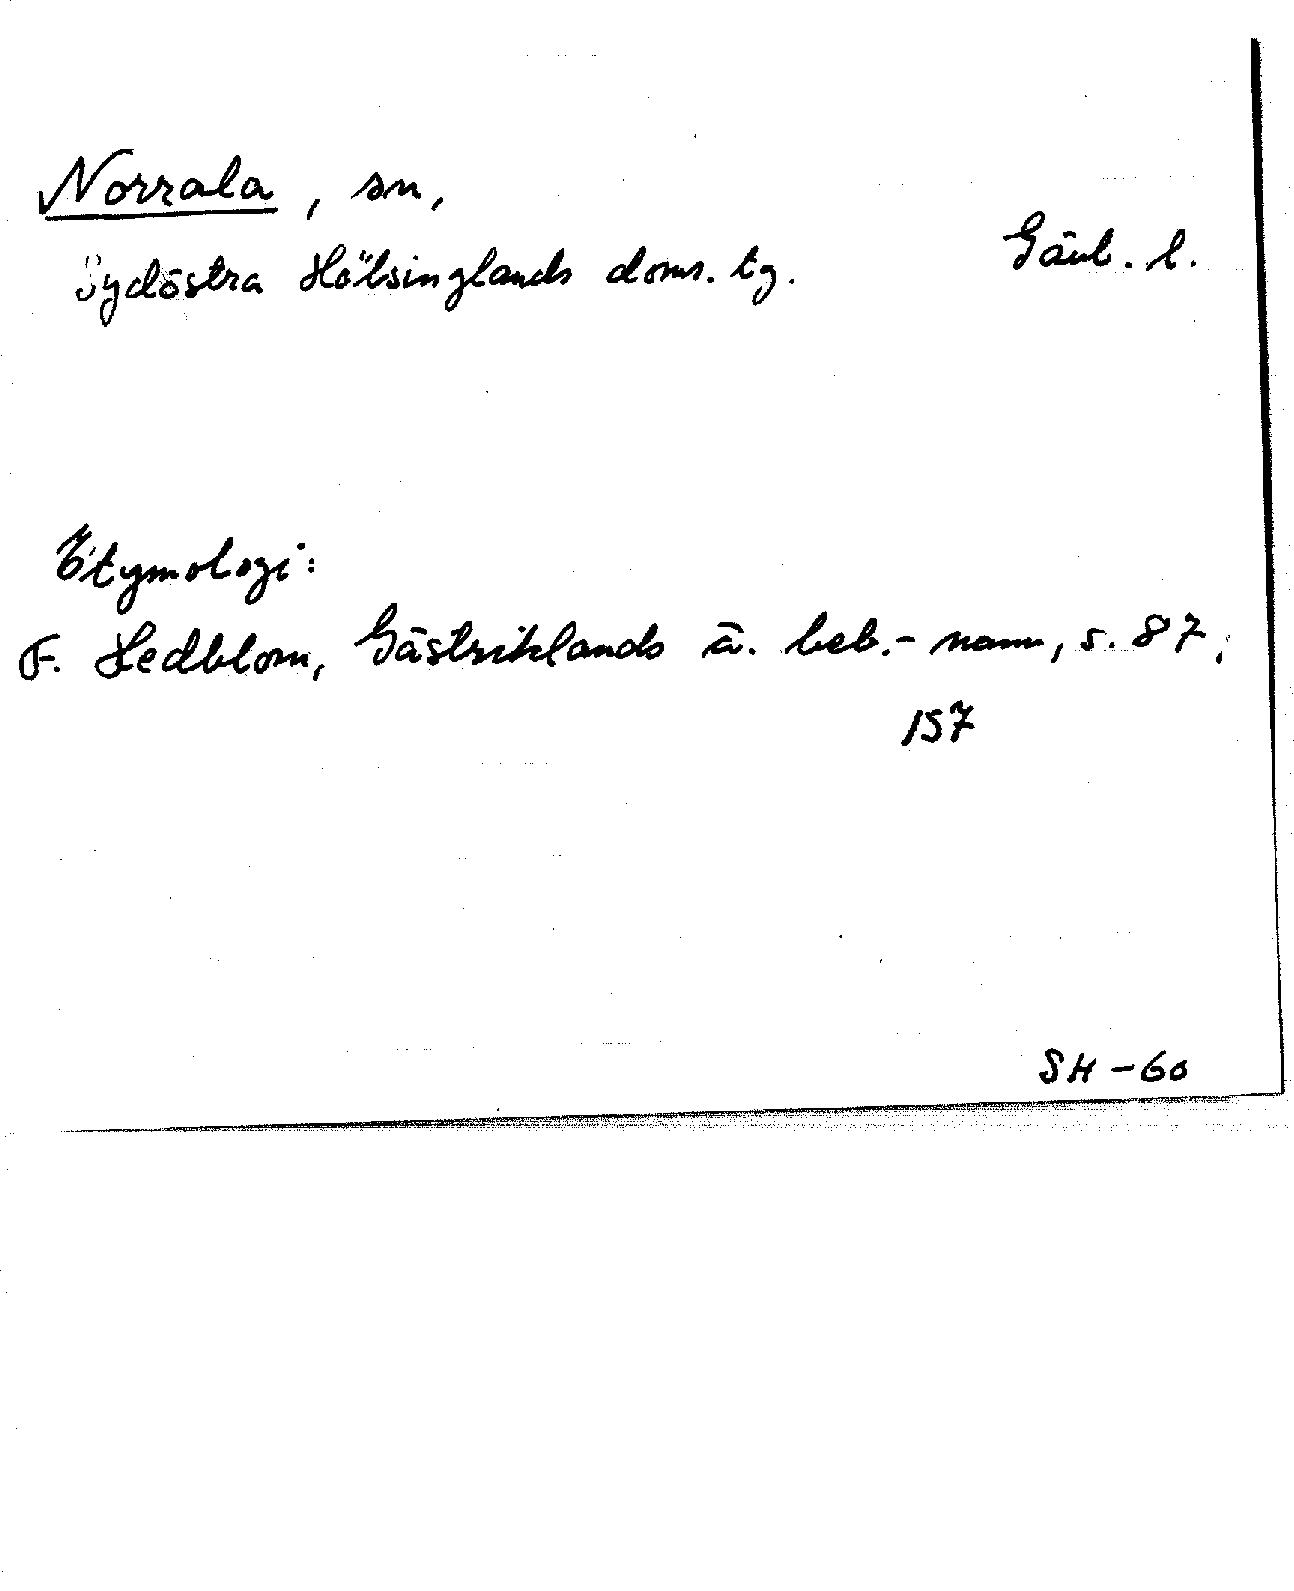 Norrala, sn,
Gävb. l.
Sydöstra Hälsinglands doms. tg.
Etymologi:
F. Hedblom, Gästriklands ä. beb.-namn, s. 87;
157
SH-60